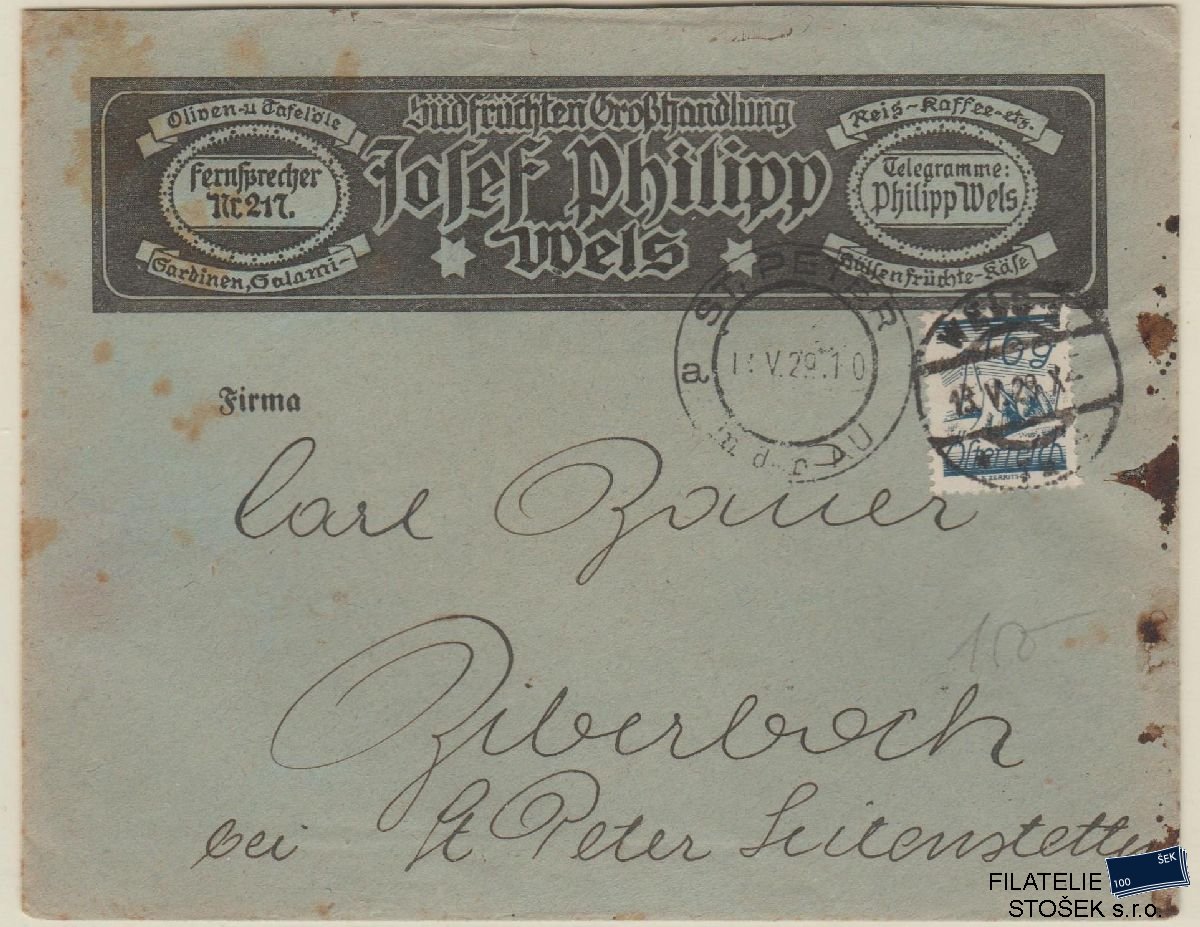 Oliven-u Tafelöle
Fernsprecher
Nr. 217.
Sardinen, Salami-
Südfrüchten Großhandlung
Josef Philipp
Wels
Reis-Kaffee-etz.
Telegramme:
Philipp Wels
Hülsenfrüchte-Käse
ST. PETER
a
V.29.10
AU
WELS
16g
13.V.29.X
Österreich
Firma
Carl Bauer
150
Biberbach
bei St Peter Seitenstetten
ŠEK
100
FILATELIE
STOŠEK s.r.o.